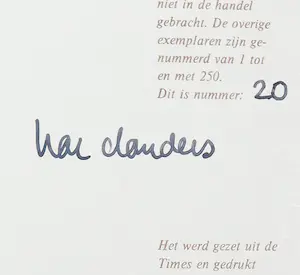 niet in de handel
gebracht. De overige
exemplaren zijn ge-
nummerd van 1 tot
en met 250.
Dit is nummer: 20
Het werd gezet uit de
Times en gedrukt